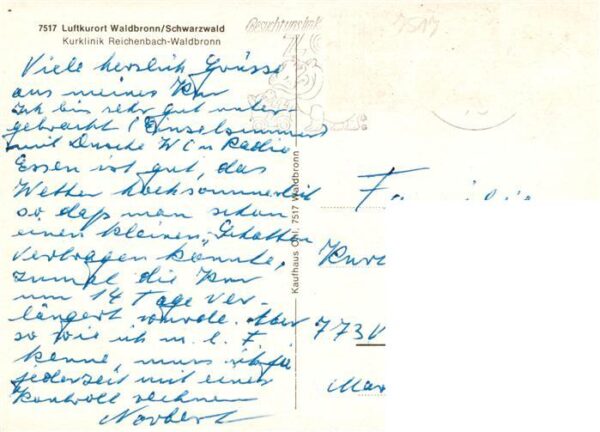 7517 Luftkurort Waldbronn/Schwarzwald
Kurklinik Reichenbach-Waldbronn
7517
Viele herzlich Grüsse
aus meines Kur
Ich bin sehr gut unter-
gebracht (Einzelzimmer
mit Dusche WC u Radio
Essen ist gut, das
Wetter hochsommerlich
so daß man schon
einen kleinen „Schatten
vertragen könnte,
zumal die Kur
um 14 Tage ver-
längert wurde. Aber
so wie ich m. l. F.
kenne, muss ich ja
jederzeit mit einer
Kontrolle rechnen
Norbert
Kaufhaus Ohl, 7517 Waldbronn
Familie
Kurt
773